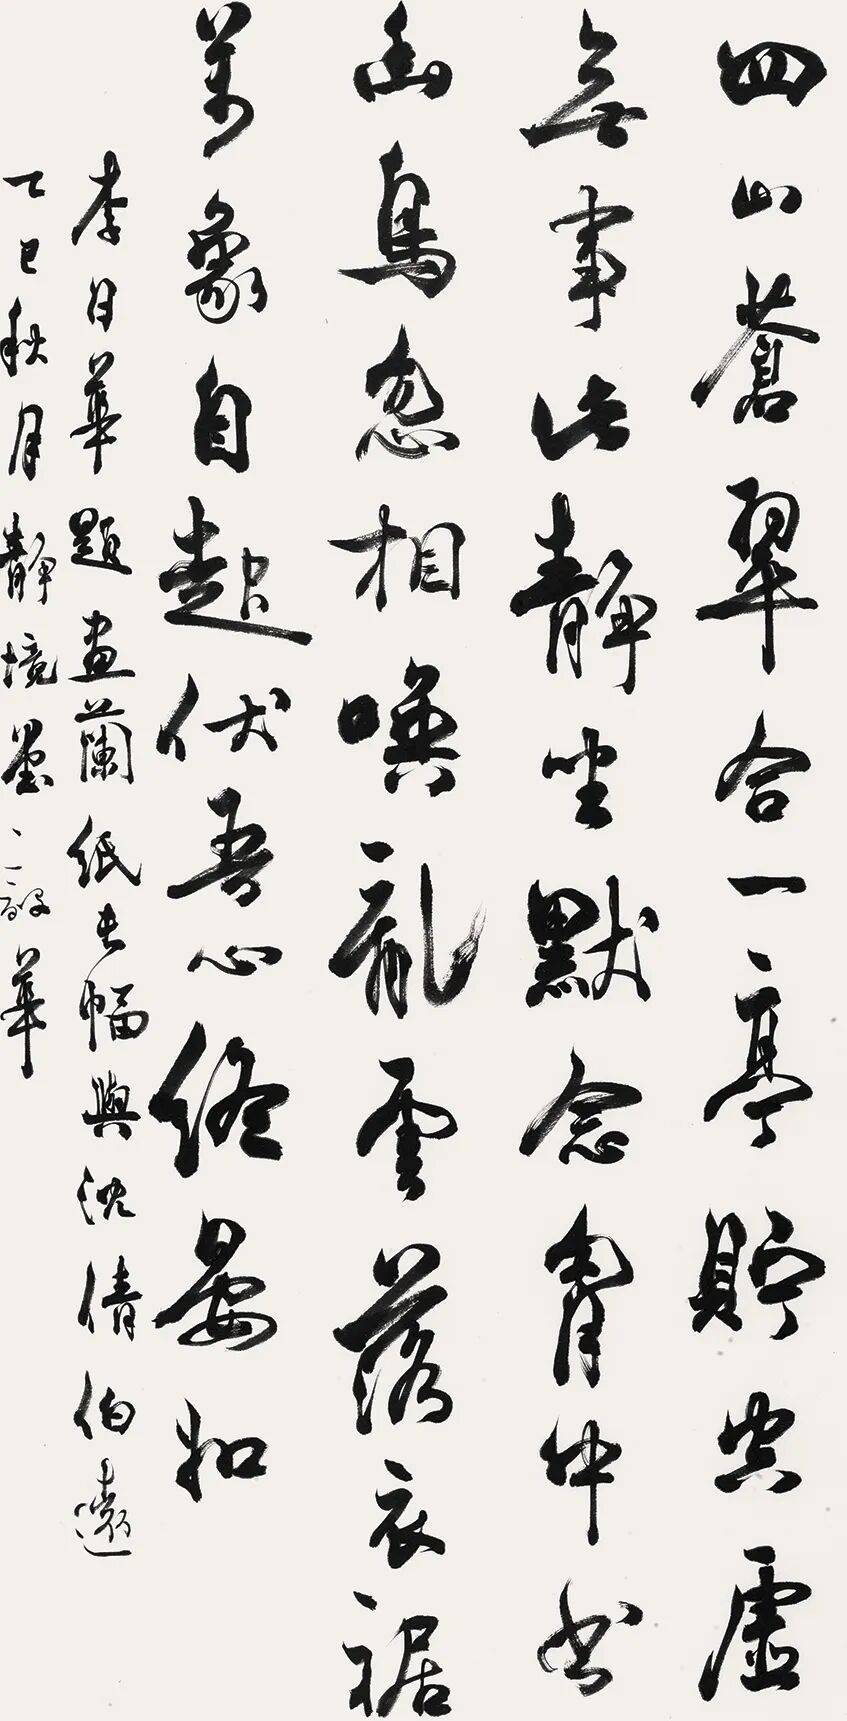 四山蒼翠合一亭貯空虛
無事此靜坐默念胷中书
幽鳥忽相喚亂雲落衣裾
萬象自起伏吾心終晏如
李日華題畫蘭紙长幅與沈倩伯
乙巳秋月靜境墨華